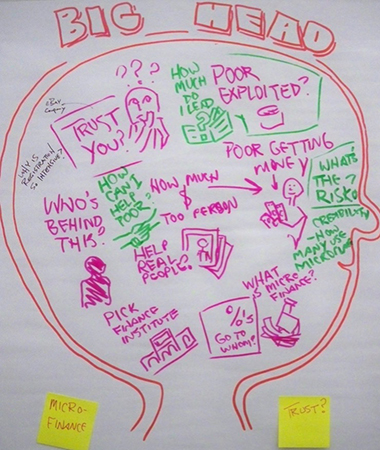 BIG HEAD
???
EBAY
COMPANY
TRUST
YOU?
HOW
MUCH
DO
I LEND
?
POOR
EXPLOITED?
WHY IS
REGISTRATION
SO INTENSIVE?
POOR GETTING
MONEY
WHAT'S
THE
RISK?
HOW
CAN I
HELP
TOO?
HOW MUCH
$
TOO PERSON
WHO'S
BEHIND
THIS?
CREDIBILITY
-HOW
MANY USE
HELP
REAL
PEOPLE?
WHAT
IS MICRO
FINANCE?
PICK
FINANCE
INSTITUTE
%'S
GO TO
WHOM?
MICRO-
FINANCE
TRUST?